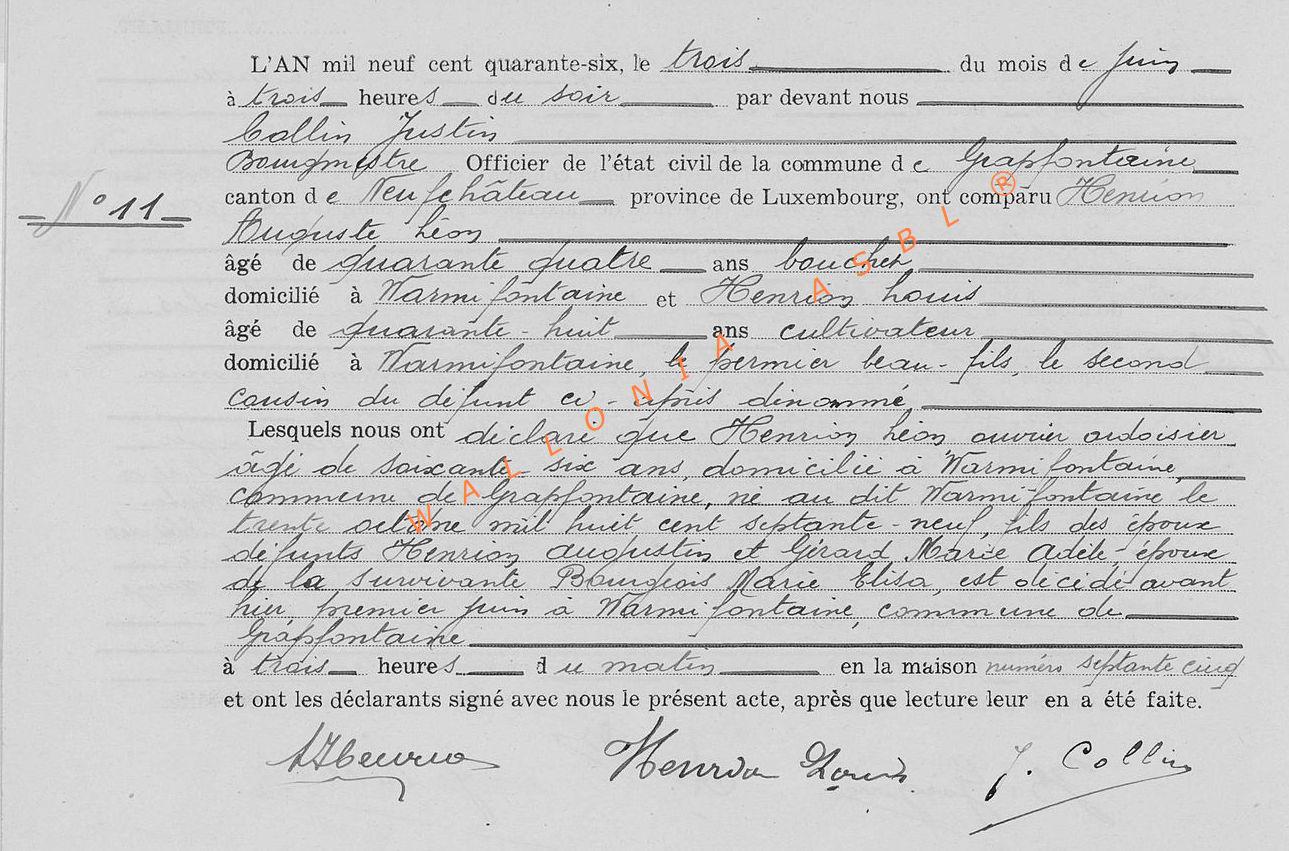 L'AN mil neuf cent quarante-six, le trois du mois de juin
à trois heures du soir par devant nous
Collin Justin
Bourgmestre Officier de l'état civil de la commune de Grapfontaine
N° 11
canton de Neufchâteau province de Luxembourg, ont comparu Henrion
Auguste Léon
âgé de quarante quatre ans boucher
domicilié à Warmifontaine et Henrion Louis
âgé de quarante-huit ans cultivateur
domicilié à Warmifontaine, le permier beau-fils, le second
cousin du défunt ci-après dénommé
Lesquels nous ont déclaré que Henrion Léon ouvrier ardoisier
âgé de soixante six ans, domicilié à Warmifontaine,
commune de Grapfontaine, né au dit Warmifontaine le
trente octobre mil huit cent septante-neuf, fils des époux
défunts Henrion Augustin et Gérard Marie Adèle, époux
de la survivante Bourgeois Marie Elisa, est décédé avant
hier, premier juin à Warmifontaine, commune de
Grapfontaine
à trois heures du matin en la maison numéro septante cinq
et ont les déclarants signé avec nous le présent acte, après que lecture leur en a été faite.
AHenrion Henrion Louis J. Collin
WALLONIA ASBL ®